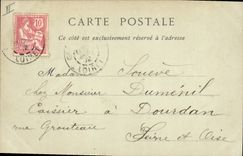 CARTE POSTALE
Ce côté est exclusivement réservé à l'adresse
10
LOIRET
Madame Souève
chez Monsieur Dumenil
Caissier à Dourdan
rue Grouteau
Seine et Oise